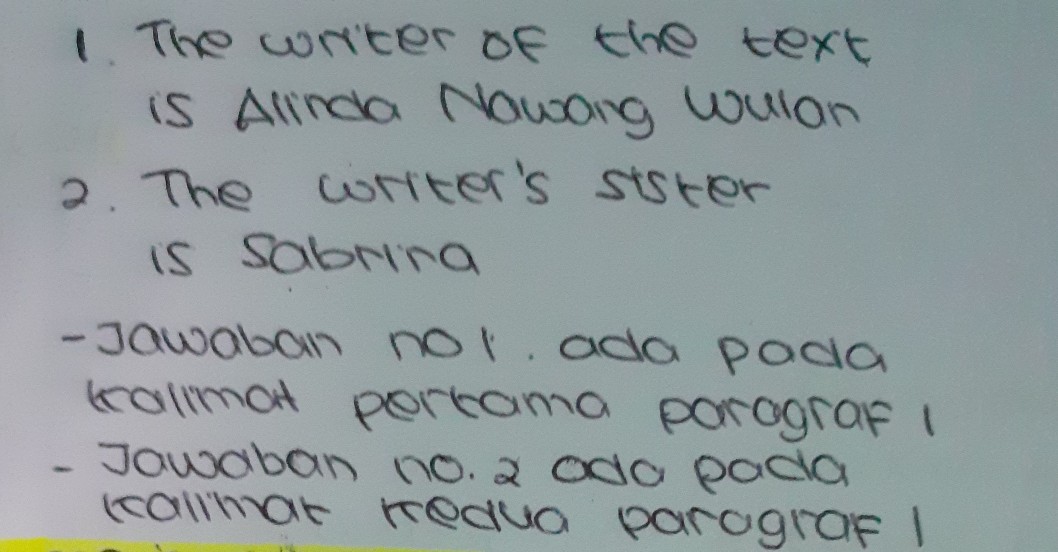 1. The writer of the text
is Alinda Nawang Wulan
2. The writer's sister
is Sabrina
- Jawaban no 1. ada pada
kalimat pertama paragraf 1
- Jawaban no. 2 ada pada
kalimat kedua paragraf 1